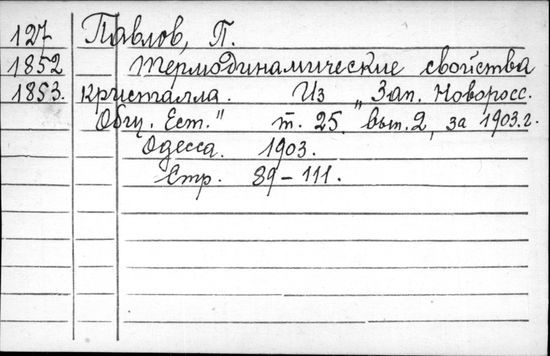 127 Павлов, П.
1852 Термодинамические свойства
1853. кристалла. Из „Зап. Новоросс.
Общ. Ест." т. 25. вып. 2, за 1903.г.
Одесса. 1903.
Стр. 89–111.